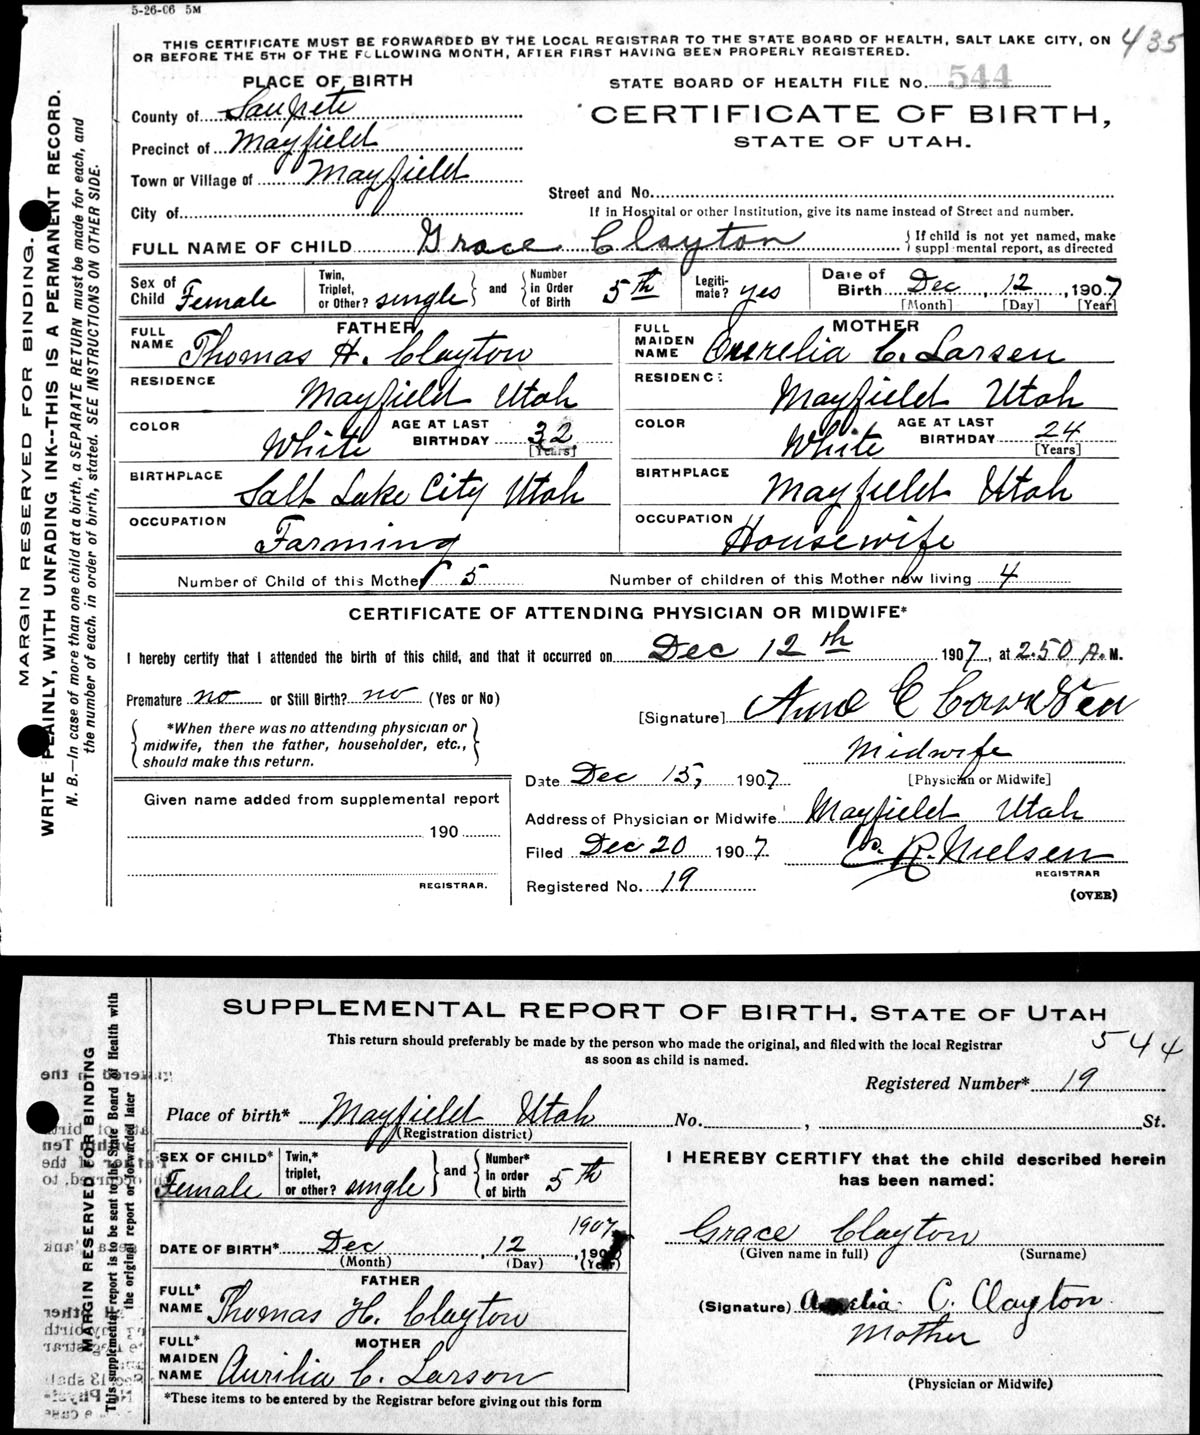 5-26-06 5M
THIS CERTIFICATE MUST BE FORWARDED BY THE LOCAL REGISTRAR TO THE STATE BOARD OF HEALTH, SALT LAKE CITY, ON
OR BEFORE THE 5TH OF THE FOLLOWING MONTH, AFTER FIRST HAVING BEEN PROPERLY REGISTERED.
435
PLACE OF BIRTH
County of Sanpete
Precinct of Mayfield
Town or Village of Mayfield
City of
STATE BOARD OF HEALTH FILE No. 544
CERTIFICATE OF BIRTH,
STATE OF UTAH.
Street and No.
If in Hospital or other Institution, give its name instead of Street and number.
FULL NAME OF CHILD Grace Clayton
If child is not yet named, make
supplemental report, as directed
Sex of Child Female
Twin, Triplet, or Other? single and Number in Order of Birth 5th
Legitimate? yes
Date of Birth Dec 12, 1907
[Month] [Day] [Year]
FATHER
FULL NAME Thomas H. Clayton
RESIDENCE Mayfield Utah
COLOR White AGE AT LAST BIRTHDAY 32 [Years]
BIRTHPLACE Salt Lake City Utah
OCCUPATION Farming
MOTHER
FULL MAIDEN NAME C. Larsen
RESIDENCE Mayfield Utah
COLOR White AGE AT LAST BIRTHDAY 24 [Years]
BIRTHPLACE Mayfield Utah
OCCUPATION Housewife
Number of Child of this Mother 5 Number of children of this Mother now living 4
CERTIFICATE OF ATTENDING PHYSICIAN OR MIDWIFE*
I hereby certify that I attended the birth of this child, and that it occurred on Dec 12th 1907, at 2.50 A.M.
Premature no or Still Birth? no (Yes or No)
*When there was no attending physician or
midwife, then the father, householder, etc.,
should make this return.
[Signature]
Midwife
[Physician or Midwife]
Date Dec 15, 1907
Address of Physician or Midwife Mayfield Utah
Filed Dec 20 1907 R. Nielsen
REGISTRAR
Registered No. 19
(OVER)
Given name added from supplemental report
190
REGISTRAR.
MARGIN RESERVED FOR BINDING.
WRITE PLAINLY, WITH UNFADING INK--THIS IS A PERMANENT RECORD.
N. B.—In case of more than one child at a birth, a SEPARATE RETURN must be made for each, and
the number of each, in order of birth, stated. SEE INSTRUCTIONS ON OTHER SIDE.
SUPPLEMENTAL REPORT OF BIRTH, STATE OF UTAH
This return should preferably be made by the person who made the original, and filed with the local Registrar
as soon as child is named.
544
Registered Number* 19
Place of birth* Mayfield Utah No. , St.
(Registration district)
SEX OF CHILD* Female
Twin,* triplet, or other? single and Number* in order of birth 5th
1907
DATE OF BIRTH* Dec , 12 , 190
(Month) (Day) (Year)
FATHER
FULL* NAME Thomas H. Clayton
MOTHER
FULL* MAIDEN NAME Aurilia C. Larson
*These items to be entered by the Registrar before giving out this form
I HEREBY CERTIFY that the child described herein
has been named:
Grace Clayton
(Given name in full) (Surname)
(Signature) C. Clayton
Mother
(Physician or Midwife)
MARGIN RESERVED FOR BINDING
This supplemental report is to be sent to the State Board of Health with
the original report or forwarded later